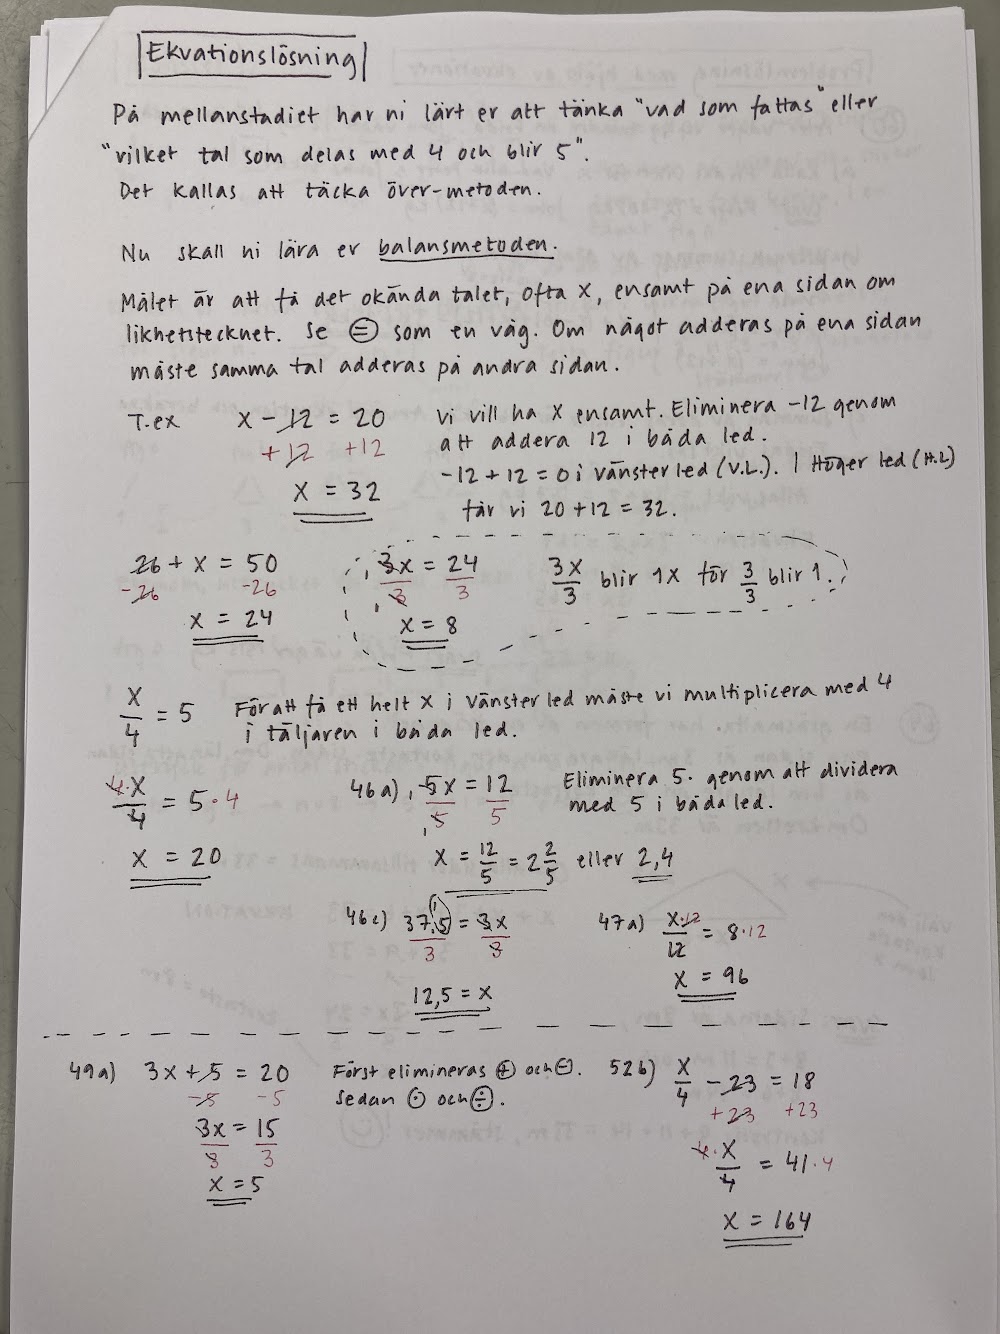 Ekvationslösning
På mellanstadiet har ni lärt er att tänka "vad som fattas" eller
"vilket tal som delas med 4 och blir 5".
Det kallas att täcka över-metoden.
Nu skall ni lära er balansmetoden.
Målet är att få det okända talet, ofta x, ensamt på ena sidan om
likhetstecknet. Se = som en våg. Om något adderas på ena sidan
måste samma tal adderas på andra sidan.
T.ex x - 12 = 20 Vi vill ha x ensamt. Eliminera -12 genom
+12 +12 att addera 12 i båda led.
x = 32 -12 + 12 = 0 i vänster led (V.L.). I Höger led (H.L)
får vi 20 + 12 = 32.
26 + x = 50
-26 -26
x = 24
3x/3 = 24/3
x = 8
3x/3 blir 1x för 3/3 blir 1.
x/4 = 5 För att få ett helt x i vänster led måste vi multiplicera med 4
i täljaren i båda led.
4·x/4 = 5·4
x = 20
46a) 5x/5 = 12/5 Eliminera 5· genom att dividera
med 5 i båda led.
x = 12/5 = 2 2/5 eller 2,4
46c) 37,5/3 = 3x/3
12,5 = x
47a) x·12/12 = 8·12
x = 96
49a) 3x + 5 = 20
-5 -5
3x/3 = 15/3
x = 5
Först elimineras + och -.
Sedan · och ÷.
52b) x/4 - 23 = 18
+23 +23
4·x/4 = 41·4
x = 164